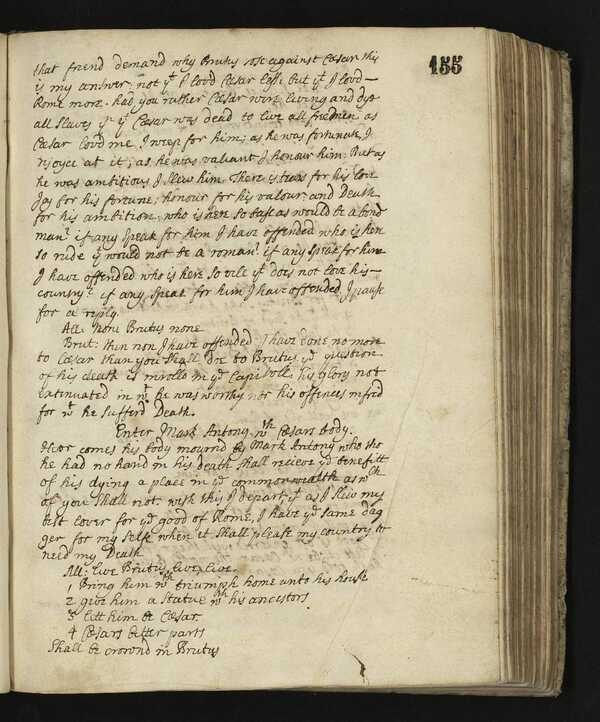 155
that friend demand why Brutus rose against Cæsar this
is my answer, not yt I lovd Cæsar lesse but yt I lovd
Rome more. had you rather Cæsar were living and dye
all slaves yn yt Cæsar was dead to live all freemen as
Cæsar lovd me, I weep for him; as he was fortunate, I
rejoyce at it; as he was valiant I honour him. But as
he was ambitious I slew him. There is tears for his love
Joy for his fortune, honour for his valour, and Death
for his ambition. who is here so base as would be a bond
man? if any speak for him I have offended who is here
so rude yt would not be a roman? if any speak for him
I have offended who is here so vile yt does not love his
country? if any speak for him I have offended, I pause
for a reply.
All. None Brutus none
Brut: then non I have offended I have done no more
to Cæsar than you shall doe to Brutus ye question
of his death is inrolld in ye Capitoll, his glory not
extenuated in wt he was worthy nor his offences inforcd
for wt he sufferd Death.
Enter Mark Antony wth Cæsars body.
Heer comes his body mournd by Mark Antony who tho
he had no hand in his death shall recieve ye benefitt
of his dying a place in ye common wealth as wch
of you shall not. with this I depart, yt as I slew my
best lover for ye good of Rome, I have ye same dag
ger for my self when it shall please my country to
need my Death
All: Live Brutus live, live.
1 Bring him wth triumph home unto his house
2 give him a statue wth his ancestors
3 lett him be Cæsar
4 Cæsars better parts
Shall be crownd in Brutus